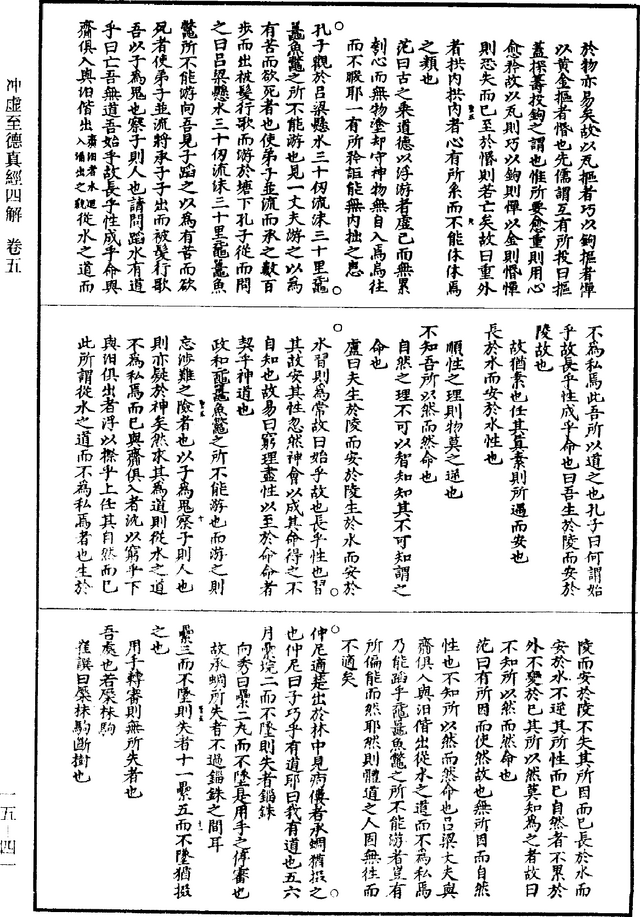 於物亦易矣故以瓦摳者巧以鉤摳者憚
以黃金摳者惛也先儒謂互有所投曰摳
蓋探籌投鉤之謂也惟所要愈重則用心
愈矜故以瓦則巧以鉤則憚以金則惛憚
則恐失而已至於惛則若亡矣故曰重外
者拱內拱內者心有所系而不能休休焉
之類也
范曰古之乘道德以浮游者虛己而無累
刳心而無物塗郤守神物無自入焉烏往
而不暇耶一有所矜詎能無內拙之患
孔子觀於呂梁懸水三十仞流沫三十里黿
鼉魚鱉之所不能游也見一丈夫游之以為
有苦而欲死者也使弟子並流而承之數百
步而出被髮行歌而游於塘下孔子從而問
之曰呂梁懸水三十仞流沫三十里黿鼉魚
鱉所不能游向吾見子蹈之以為有苦而欲
死者使弟子並流將承子子出而被髮行歌
吾以子為鬼也察子則人也請問蹈水有道
乎曰亡吾無道吾始乎故長乎性成乎命與
齎俱入與汨偕出齎汨者水迴入涌出之貌從水之道而
不為私焉此吾所以道之也孔子曰何謂始
乎故長乎性成乎命也曰吾生於陵而安於
陵故也
故猶素也任其真素則所遇而安也
長於水而安於水性也
順性之理則物莫之逆也
不知吾所以然而然命也
自然之理不可以智知知其不可知謂之
命也
盧曰夫生於陵而安於陵生於水而安於
水習則為常故曰始乎故也長乎性也習
其故安其性忽然神會以成其命得之不
自知也故易曰窮理盡性以至於命命者
契乎神道也
政和黿鼉魚鱉之所不能游也而游之則
忘涉難之險者也以子為鬼察子則人也
則亦疑於神矣然求其為道則從水之道
不為私焉而已與齎俱入者沈以窮乎下
與汨俱出者浮以標乎上任其自然而已
此所謂從水之道而不為私焉者也生於
陵而安於陵不失其所因而已長於水而
安於水不逆其所性而已自然者不累於
外不變於己其所以然莫知為之者故曰
不知所以然而然命也
范曰有所因而使然故也無所因而自然
性也不知所以然而然命也呂梁丈夫與
齎俱入與汨偕出從水之道而不為私焉
乃能蹈乎黿鼉魚鱉之所不能游者豈有
所偏能而然耶然則體道之人因無往而
不適矣
仲尼適楚出於林中見痀僂者承蜩猶掇之
也仲尼曰子巧乎有道耶曰我有道也五六
月纍垸二而不墜則失者錙銖
向秀曰纍二丸而不墜是用手之停審也
故承蜩所失者不過錙銖之間耳
纍三而不墜則失者十一纍五而不墜猶掇
之也
用手轉審則無所失者也
吾處也若橜株駒
崔譔曰橜株駒斷樹也
冲虛至德真經四解 卷五
一五—四一